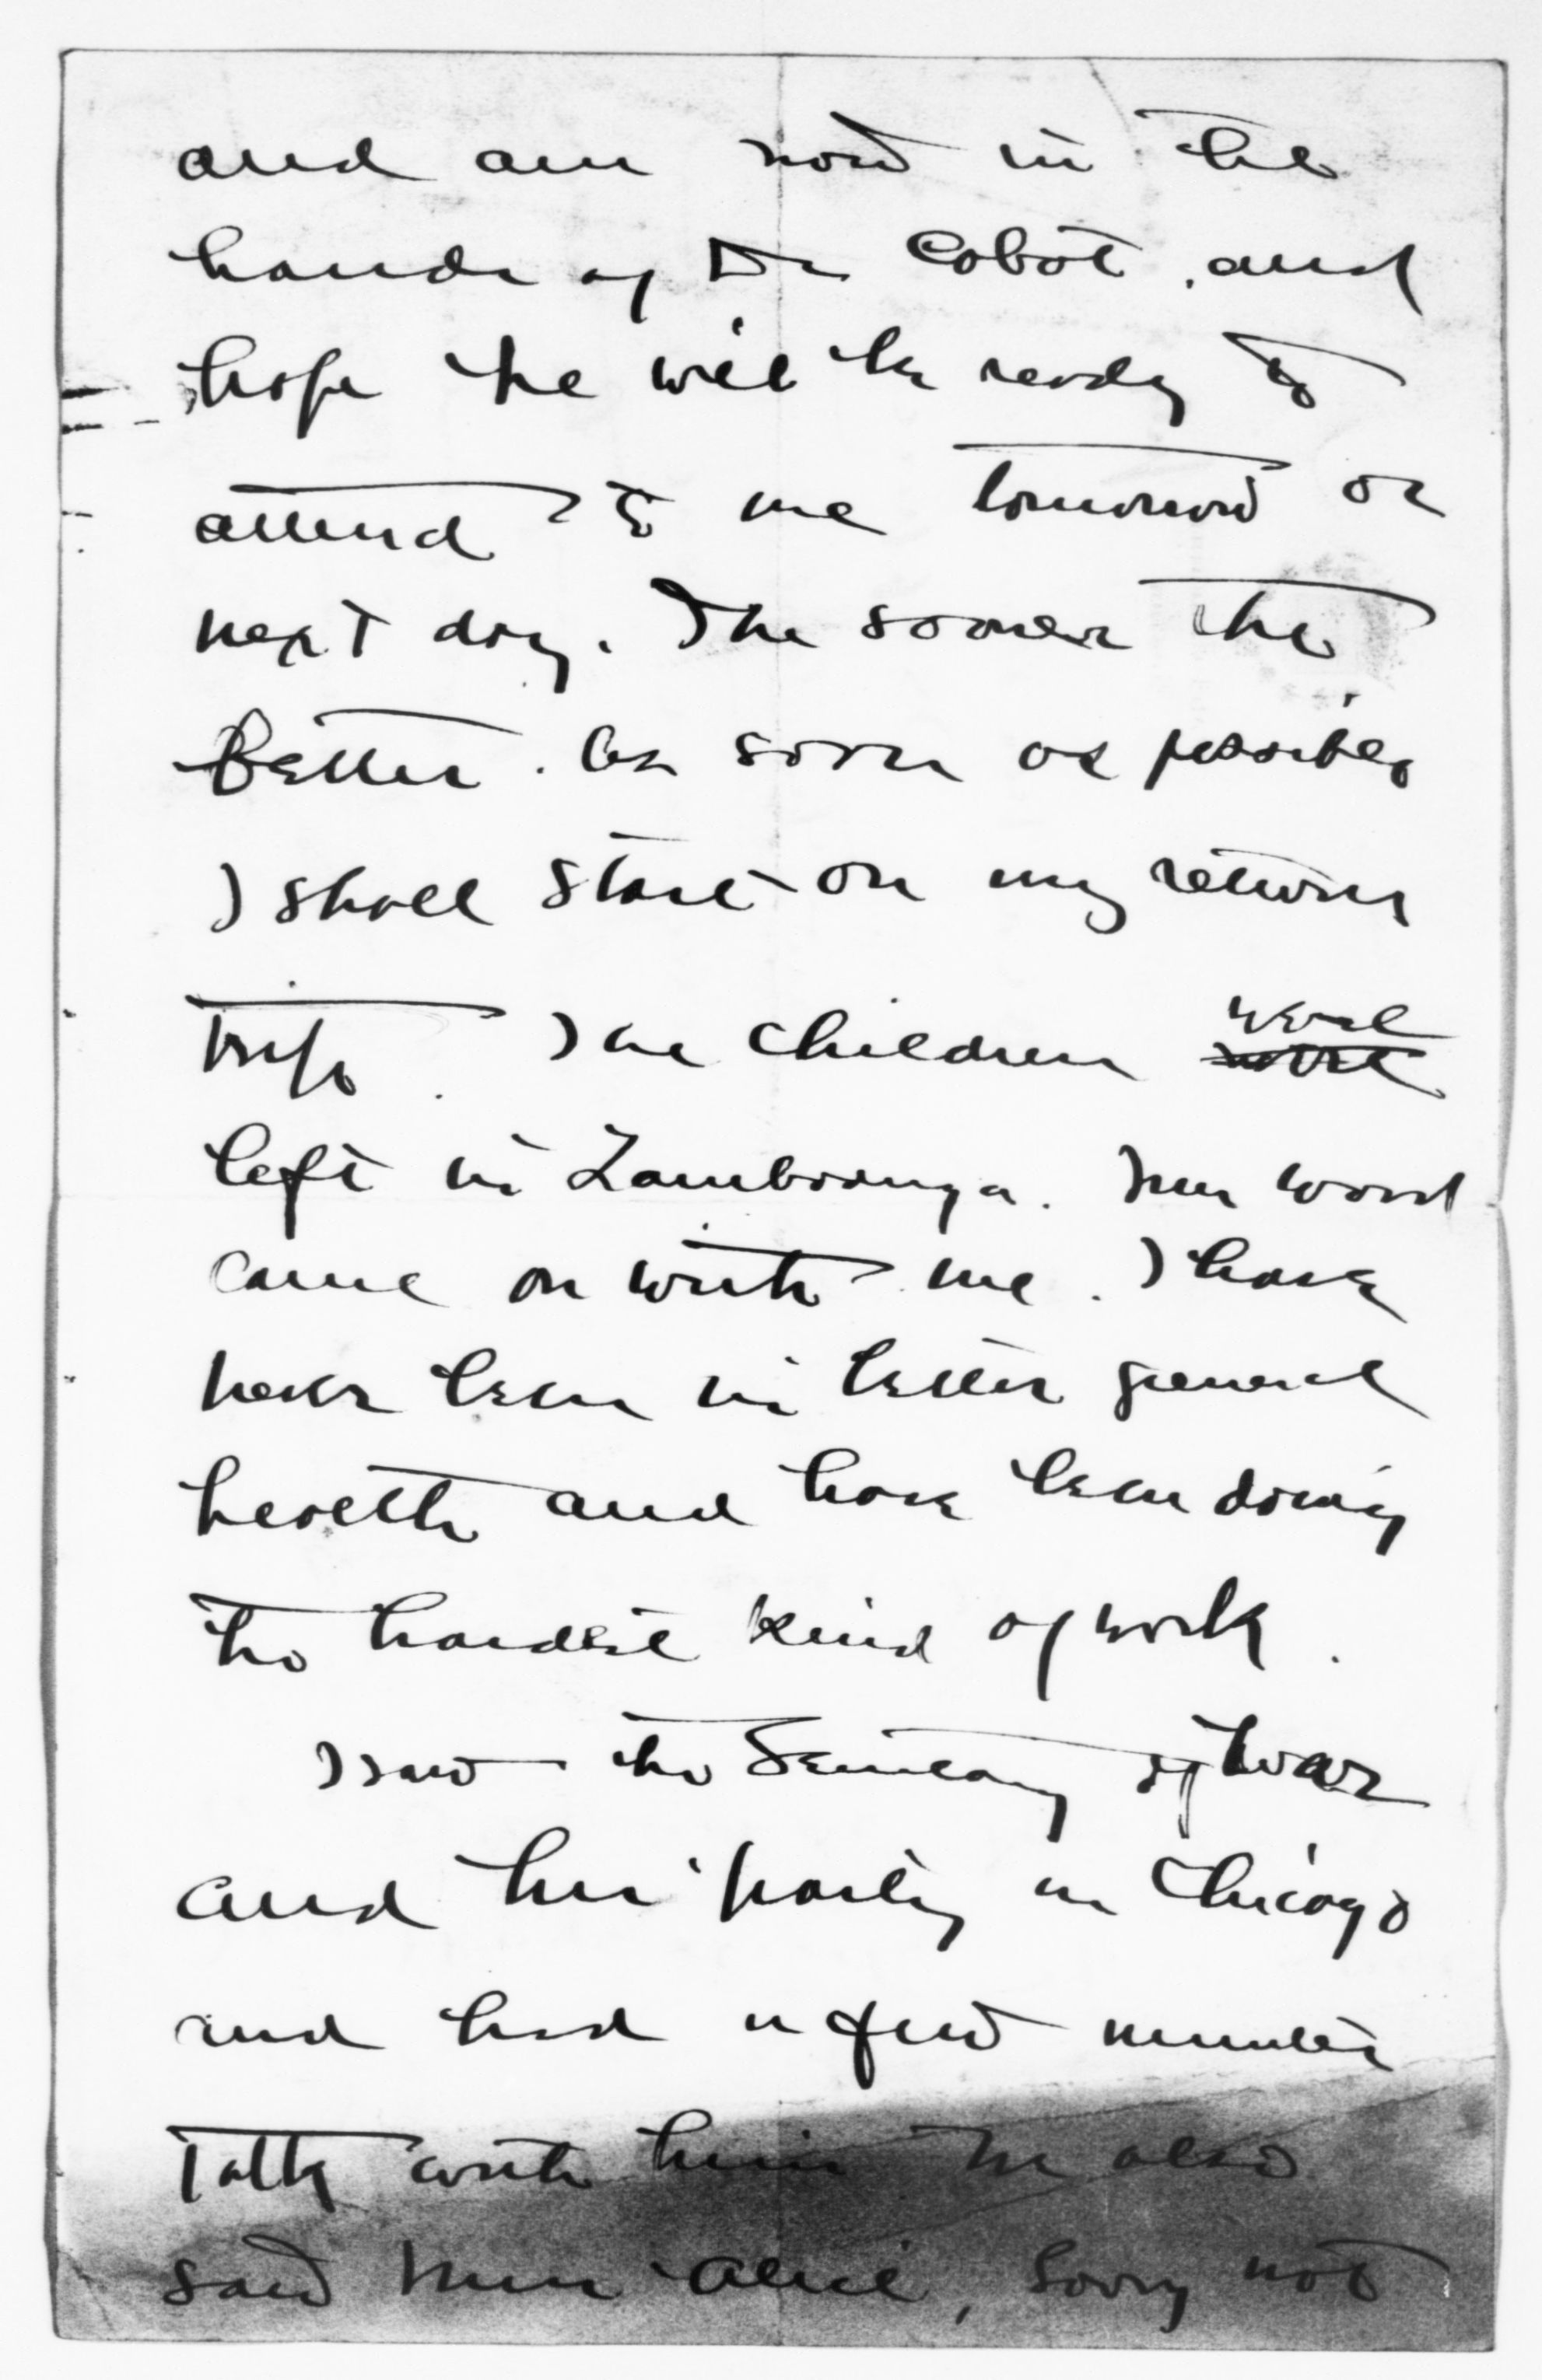 and am now in the
hands of Dr Cobot, and
hope he will be ready to
attend to me tomorrow or
next day. The sooner the
better. As soon as possible
I shall start on my return
trip. The children were
left in Zamboanga. Mrs Wood
came on with me. I have
never been in better general
health and have been doing
the hardest kind of work.
I saw the Secretary of War
and his party in Chicago
and had a few minutes
talk with him. He also
saw Miss Alice, Sorry not